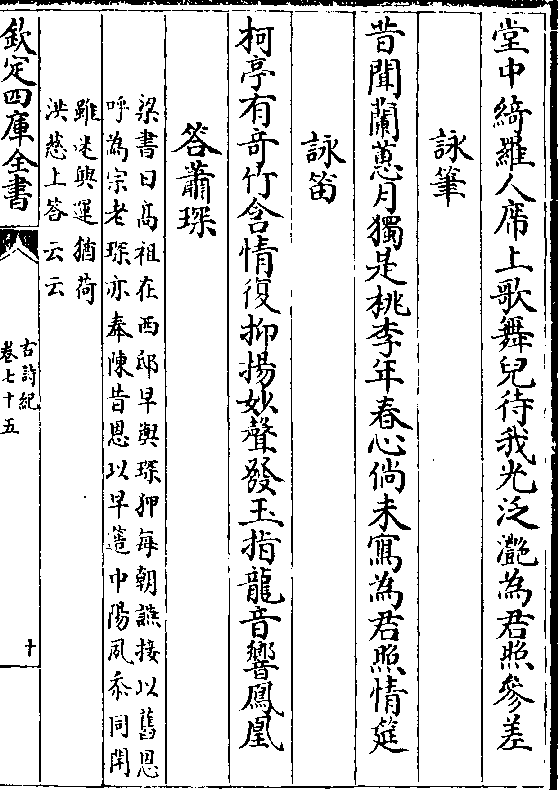 堂中綺羅人席上歌舞兒待我光泛灧為君照參差
詠筆
昔聞蘭蕙月獨是桃李年春心倘未寫為君照情筵
詠笛
柯亭有竒竹含情復抑揚妙聲發玉指龍音響鳳凰
答蕭琛
梁書曰髙祖在西邸早與琛狎每朝讌接以舊恩
呼為宗老琛亦奉陳昔恩以早簉中陽夙忝同閈
雖迷興運猶荷
洪慈上答云云
欽定四庫全書
古詩紀
卷七十五
十